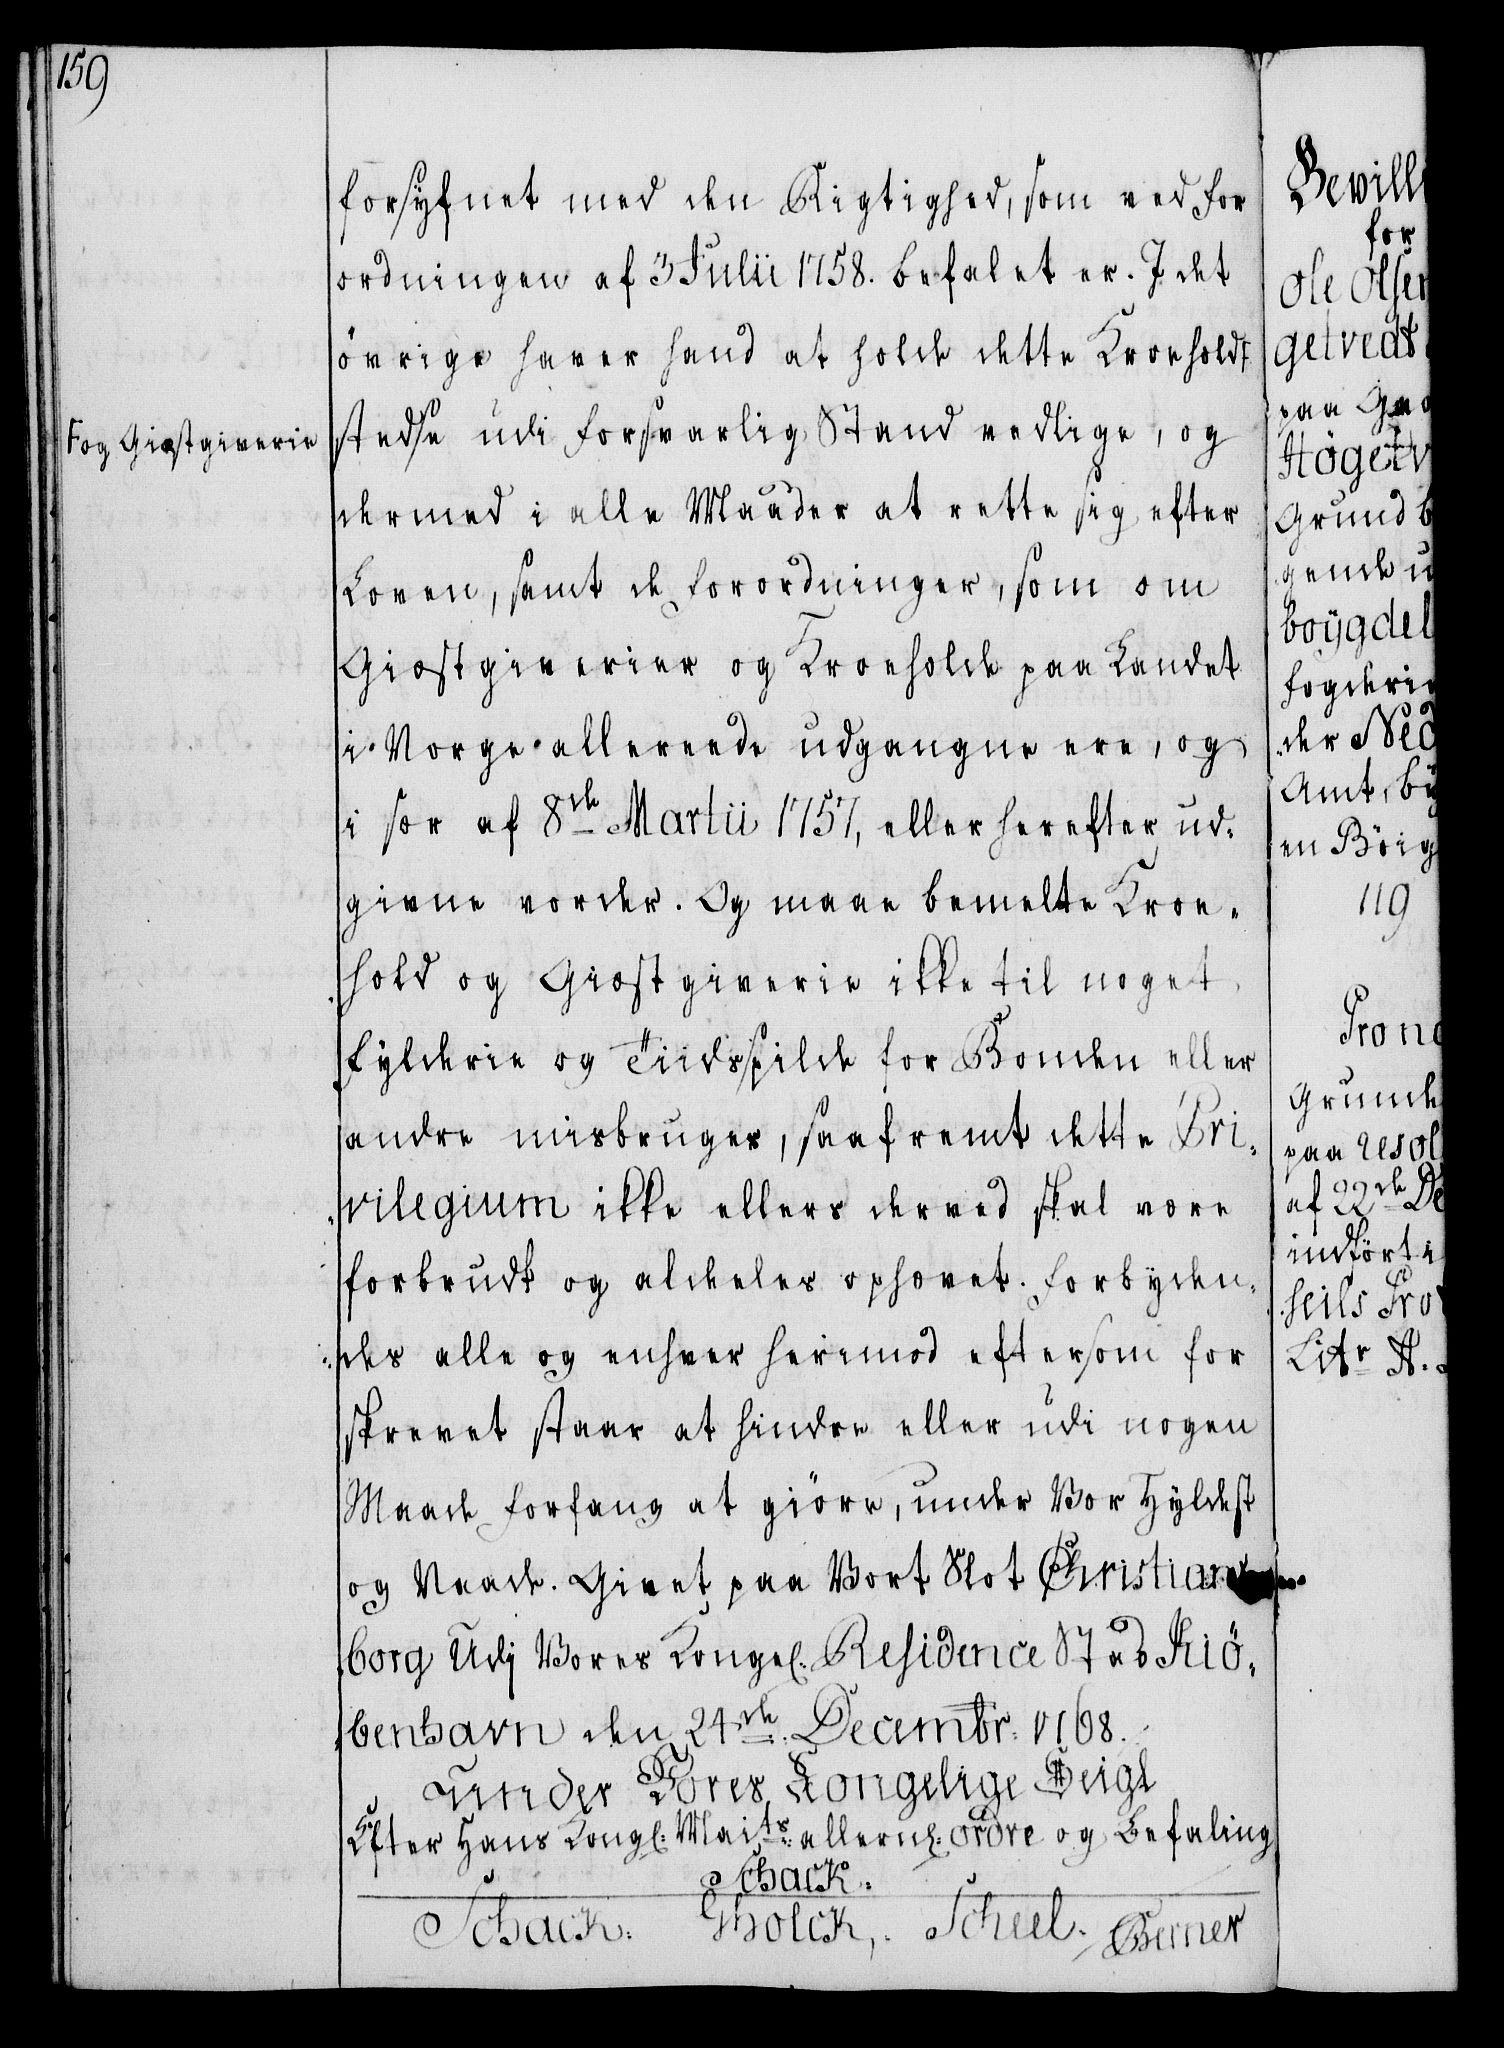 159
forsyfnet med den Rigtighed, som ved For
ordningen af 3 Julii 1758. befalet er. J det
övrige haver hand at holde dette Kroehold
Fog Giæstgiverie
stedse udi forsvarlig Stand vedlige, og
dermed i alle Maader at rette sig efter
Loven, samt de Forordninger, som om
Giæstgiverier og Kroeholde paa Landet
i Norge allereede udgangne ere, og
i sær af 8de Martii 1757, eller herefter ud-
givne vorder. Og maae bemelte Kroe-
hold og Giæstgiverie ikke til noget
Fylderie og Tiidsspilde for Bonden eller
andre misbruges, saafremt dette Pri-
vilegium ikke ellers derved skal være
forbrudt og aldeles ophævet. Forbyden-
des alle og enhver herimod eftersom for
skrevet staar at hindre eller udi nogen
Maade Forfang at giöre, under Vor Hyldest
og Naade. Givet paa Vort Slot Christians
borg Udj Vores Kongel. Residence Stad Kiö-
benhavn den 24de Decembr. 1768.
Under Vores Kongelige Seigl
Efter Hans Kongl: Maits: allern: ordre og Befaling
Schack.
Schack. GHolck, Scheel. Berner
Bevill
for
Ole Olsen
getvedt
paa
Höget
Grund b
gende u
böygdel
Fogderie
der Ned
Amt, by
en Böig
119
Prono
Grunde
paa resol
af 22de De
indfört i
seils Pro
Litr A.